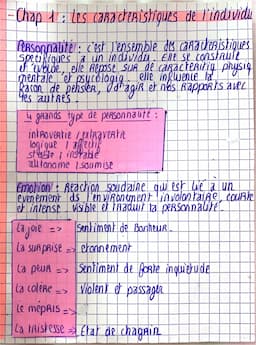 - Chap 1 : Les caractéristiques de l'individu
Personnalité : c'est l'ensemble des caractéristiques
spécifiques a un individu. Elle se construit
et évolue, elle repose sur de caractéritiq physiq
mentale et psycliogiq. elle influence la
façon de penser, d'agir et nos rapports avec
les autres.
4 grands type de personnalité :
introvertie / extravertie
logique / affectif
stable / instable
autonome / soumise
Emotion : Réaction soudaine qui est lié a un
évenement ds l'environement involontaire, courte
et intense. visible et traduit la personnalité.
La joie => Sentiment de Bonheur.
La surprise => étonnement
La peur => Sentiment de forte inquiétude
La colère => Violent et passager
Le mépris =>
La tristesse => État de chagrin